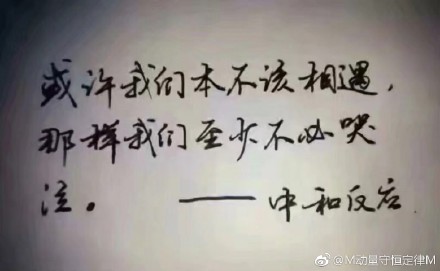 或许我们本不该相遇，
那样我们至少不必哭
泣。 —— 中和反应
@M动量守恒定律M